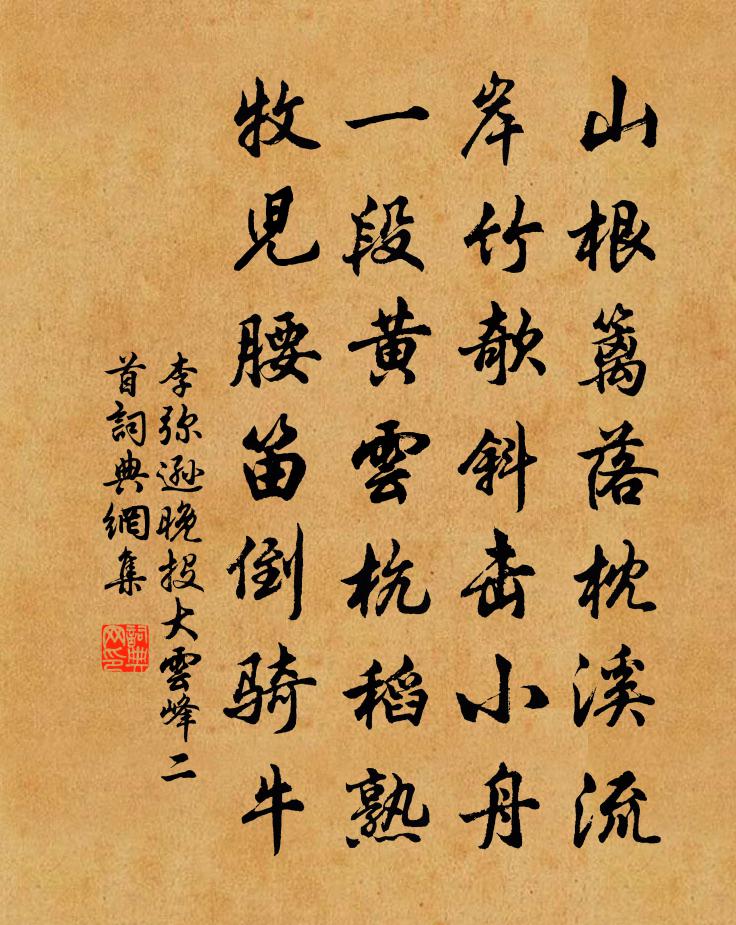 山根篱落枕溪流
岸竹欹斜击小舟
一段黃雲杭稻熟
牧児腰笛倒骑牛
李弥遜晚投大雲峰二
首詞典網集
詞典网印